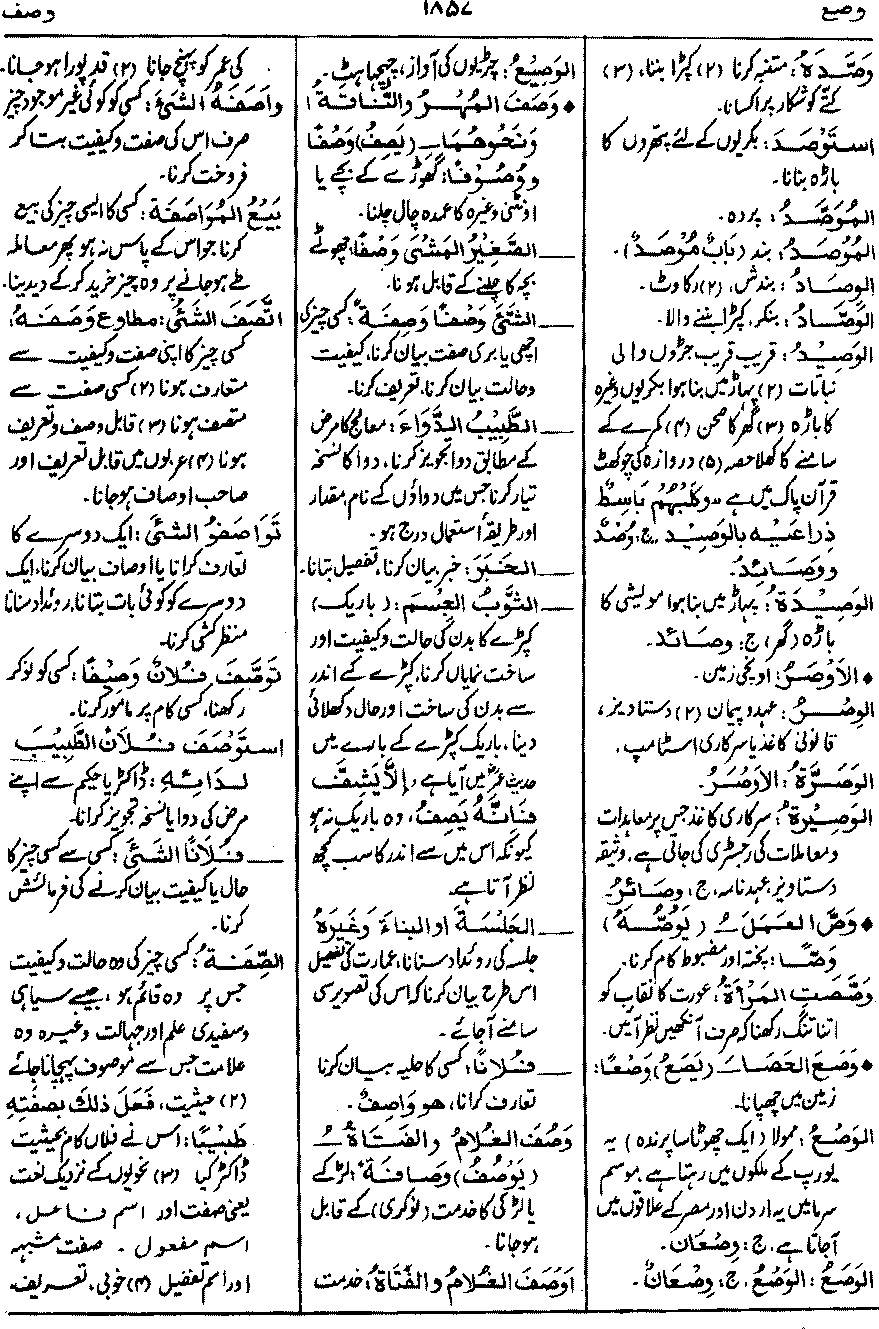 وصع ۱۸۵۷ وصف
وَصَّدَهُ: متنبہ کرنا (۲) کپڑا بننا، (۳)
کتے کو شکار پر اکسانا۔
اسْتَوْصَدَ: بکریوں کے لئے پتھروں کا
باڑہ بنانا۔
المُوَصَّدُ: پردہ۔
المُوْصَدُ: بند (بَابٌ مُوْصَدٌ)۔
الوِصَادُ: بندش، (۲) رکاوٹ۔
الوَصَّادُ: بنکر، کپڑا بننے والا۔
الوَصِيْدُ: قریب قریب جڑوں والی
نباتات (۲) پہاڑ میں بنا ہوا بکریوں وغیرہ
کا باڑہ (۳) گھر کا صحن (۴) کمرے کے
سامنے کا کھلا حصہ (۵) دروازہ کی چوکھٹ
قرآن پاک میں ہے «وَكَلْبُهُمْ بَاسِطٌ
ذِرَاعَيْهِ بِالوَصِيْدِ» ج: وُصُدٌ
ووَصَائِدُ۔
الوَصِيْدَةُ: پہاڑ میں بنا ہوا مویشی کا
باڑہ (گھر) ج: وصَائد۔
♦ الأَوْصَرُ: اونچی زمین۔
الوِصْرُ: عہد و پیمان (۲) دستاویز،
قانونی کاغذ یا سرکاری اسٹامپ۔
الوَصَرَّةُ: الأوْصَرُ۔
الوَصِيْرَةُ: سرکاری کاغذ جس پر معاہدات
و معاملات کی رجسٹری کی جاتی ہے، وثیقہ
دستاویز، عہدنامہ، ج: وصَائرُ۔
♦ وَصَّ العَمَلَ ـُ (يَوُصُّهُ)
وَصًّا: پختہ اور مضبوط کام کرنا۔
وَصَّصَتِ المَرْأَةُ: عورت کا نقاب کو
اتنا تنگ رکھنا کہ صرف آنکھیں نظر آئیں۔
♦ وَصَعَ الحَصَاةَ ـَ (يَصَعُ) وَصْعًا:
زمین میں چھپانا۔
الوَصْعُ: ممولا (ایک چھوٹا سا پرندہ) یہ
یورپ کے ملکوں میں رہتا ہے، موسم
سرما میں یہ اردن اور مصر کے علاقوں میں
آجاتا ہے، ج: وِصْعَان۔
الوَصَعُ: الوَصْعُ، ج: وِصْعَانٌ۔
الوَصِيْعُ: چڑیوں کی آواز، چہچہاہٹ۔
♦ وَصَفَ المُهْرُ والنَّاقَةُ
وَنَحْوُهُمَا ـِ (يَصِفُ) وَصْفًا
وَوُصُوْفًا: گھوڑے کے بچے یا
اونٹنی وغیرہ کا عمدہ چال چلنا۔
ـــ الصَّغِيْرُ المَشْىَ وَصْفًا: چھوٹے
بچہ کا چلنے کے قابل ہونا۔
ـــ الشَّئَ وَصْفًا وَصِفَةً: کسی چیز کی
اچھی یا بری صفت بیان کرنا، کیفیت
و حالت بیان کرنا، تعریف کرنا۔
ـــ الطَّبِيْبُ الدَّوَاءَ: معالج کا مرض
کے مطابق دوا تجویز کرنا، دوا کا نسخہ
تیار کرنا جس میں دواؤں کے نام، مقدار
اور طریقۂ استعمال درج ہو۔
ـــ الخَبَرَ: خبر بیان کرنا، تفصیل بتانا۔
ـــ الثَّوْبُ الجِسْمَ: (باریک)
کپڑے کا بدن کی حالت و کیفیت اور
ساخت نمایاں کرنا، کپڑے کے اندر
سے بدن کی ساخت اور حال دکھلائی
دینا، باریک کپڑے کے بارے میں
حدیث عمرؓ میں آیا ہے، إِلَّا يَشِفَّ
فَإِنَّهُ يَصِفُ، وہ باریک نہ ہو
کیونکہ اس میں سے اندر کا سب کچھ
نظر آتا ہے۔
ـــ الجَلْسَةَ أو البناءَ وَغَيْرَهُ
جلسہ کی روئداد سنانا، عمارت کی تفصیل
اس طرح بیان کرنا کہ اس کی تصویر سی
سامنے آجائے۔
ـــ فُلَانًا: کسی کا حلیہ بیان کرنا
تعارف کرانا، هو وَاصِفٌ۔
وَصُفَ الغُلَامُ والفَتَاةُ ـُ
(يَوْصُفُ) وَصَافَةً: لڑکے
یا لڑکی کا خدمت (نوکری) کے قابل
ہو جانا۔
أَوْصَفَ الغُلَامُ والفَتَاةُ: خدمت
کی عمر کو پہنچ جانا (۲) قد پورا ہو جانا۔
وَاصَفَهُ الشَّئَ: کسی کو کوئی غیر موجود چیز
صرف اس کی صفت و کیفیت بتا کر
فروخت کرنا۔
بَيْعُ المُوَاصَفَةِ: کسی کا ایسی چیز کی بیع
کرنا، جو اس کے پاس نہ ہو پھر معاملہ
طے ہو جانے پر وہ چیز خرید کر کے دیدینا۔
اتَّصَفَ الشَّئُ: مطاوع وَصَفَهُ:
کسی چیز کا اپنی صفت و کیفیت سے
متعارف ہونا (۲) کسی صفت سے
متصف ہونا (۳) قابل وصف و تعریف
ہونا (۴) عربوں میں قابل تعریف اور
صاحب اوصاف ہو جانا۔
تَوَاصَفُوا الشَّئَ: ایک دوسرے کا
تعارف کرانا یا اوصاف بیان کرنا، ایک
دوسرے کو کوئی بات بتانا، روئداد سنانا
منظر کشی کرنا۔
تَوَصَّفَ فُلَانٌ وَصِيْفًا: کسی کو نوکر
رکھنا، کسی کام پر مامور کرنا۔
اسْتَوْصَفَ فُلَانٌ الطَّبِيْبَ
لِدَائِهِ: ڈاکٹر یا حکیم سے اپنے
مرض کی دوا یا نسخہ تجویز کرانا۔
ـــ فُلَانًا الشَّئَ: کسی سے کسی چیز کا
حال یا کیفیت بیان کرنے کی فرمائش
کرنا۔
الصِّفَةُ: کسی چیز کی وہ حالت و کیفیت
جس پر وہ قائم ہو، جیسے سیاہی
و سفیدی علم اور جہالت وغیرہ وہ
علامت جس سے موصوف پہچانا جائے
(۲) حیثیت، فَعَلَ ذلكَ بِصِفَتِهِ
طَبِيْبًا: اس نے فلاں کام بحیثیت
ڈاکٹر کیا (۳) نحویوں کے نزدیک نعت
یعنی صفت اور اسم فاعل،
اسم مفعول۔ صفت مشبہ
اور اسم تفضیل (۴) خوبی، تعریف